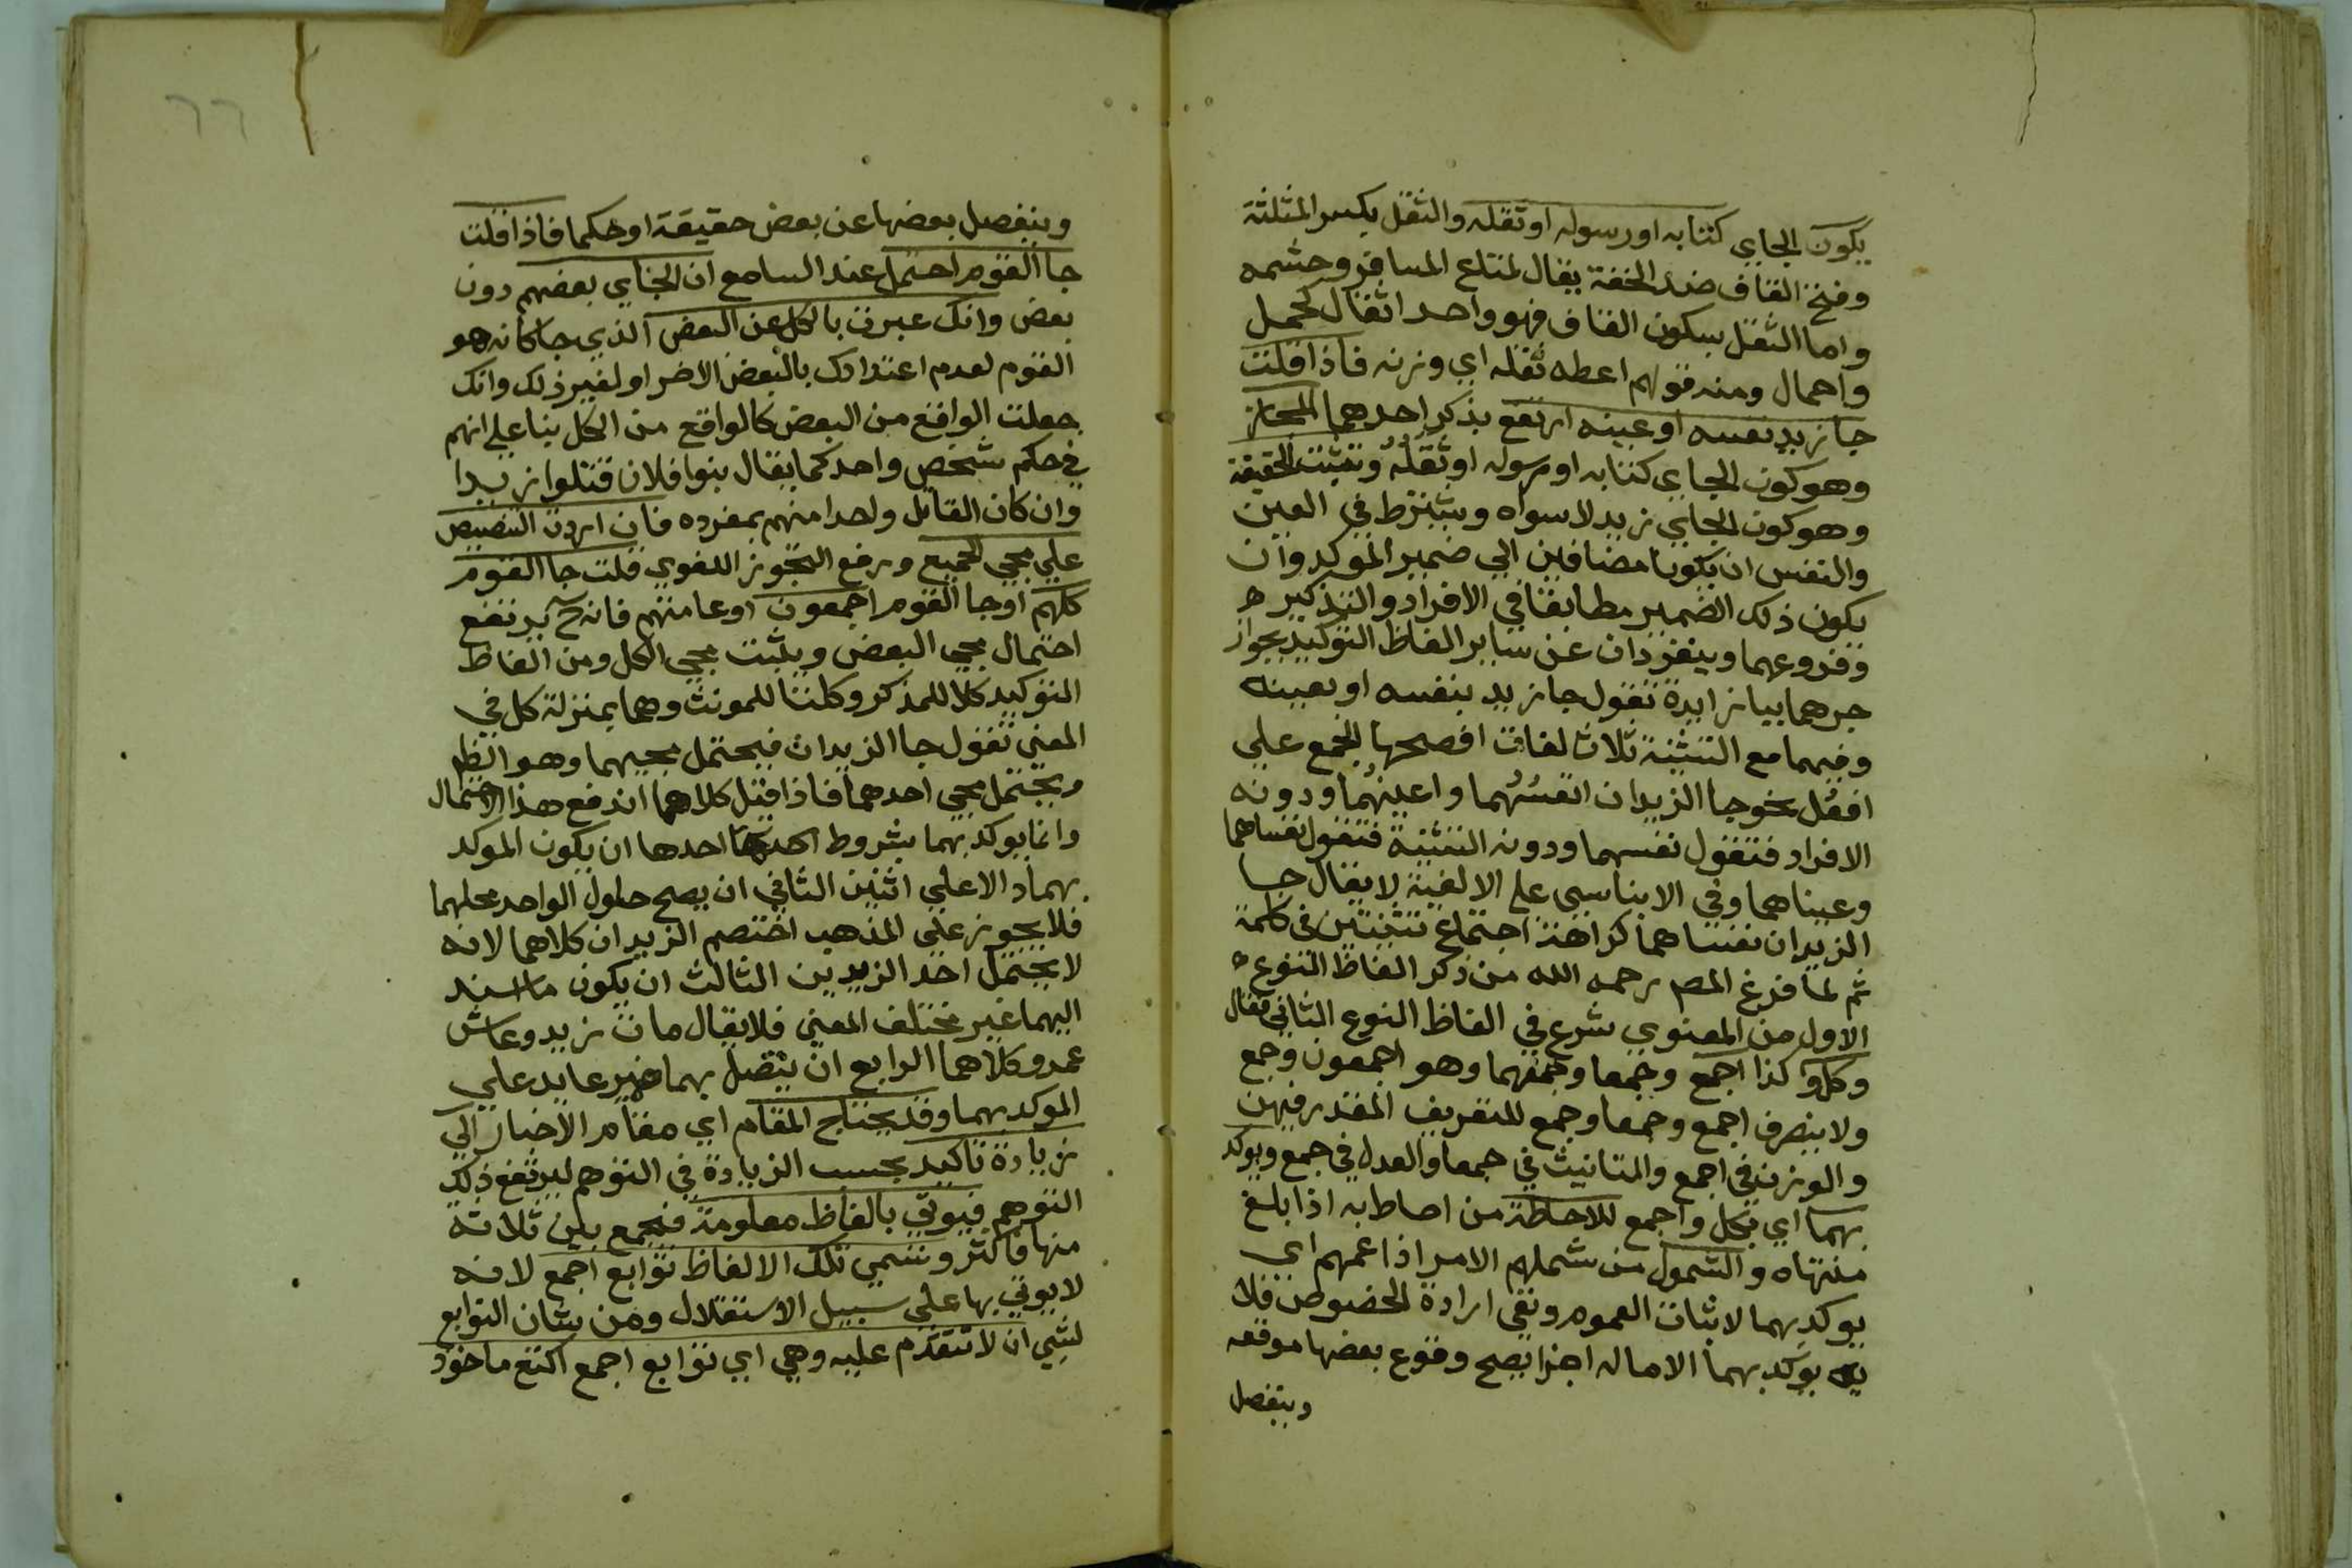 يكون الجاي كتابه او رسوله او ثقله والثقل بكسر المثلثة
وفتح القاف ضد الخفة يقال لمتاع المسافر وحشمه
واما الثقل بسكون القاف فهو واحد اثقال كحمل
واحمال ومنه قولهم اعطه ثقله اي وزنه فاذا قلت
جا زيد نفسه او عينه ارتفع بذكر احدهما المجاز
وهو كون الجاي كتابه او رسوله او ثقله وتثبت الحقيقة
وهو كون الجاي زيد لا سواه ويشترط في العين
والنفس ان يكونا مضافين الي ضمير الموكد وان
يكون ذلك الضمير مطابقا في الافراد والتذكير
وفروعهما وينفردان عن ساير الفاظ التوكيد بجواز
جرهما ببا زايدة تقول جا زيد بنفسه او بعينه
وفيهما مع التثنية ثلاث لغات افصحها الجمع علي
افعُل نحو جا الزيدان انفسُهُما واعينهُما ودونه
الافراد فتقول نفسهما ودونه التثنية فتقول نفساهما
وعيناهما وفي الابناسي علي الالفية لا يقال جا
الزيدان نفساهما كراهة اجتماع تثنيتين في كلمة
ثم لما فرغ المص رحمه الله من ذكر الفاظ النوع
الاول من المعنوي شرع في الفاظ النوع الثاني فقال
وكل وكذا اجمع وجمعا وجمعهما وهو اجمعون وجمع
ولا ينصرف اجمع وجمعا وجمع للتعريف المقدر فيهن
والوزن في اجمع والتانيث في جمعا والعدل في جمع ويوكد
بهما اي بكل واجمع للاحاطة من احاط به اذا بلغ
منتهاه والشمول من شملهم الامر اذا عمهم اي
يوكد بهما لاثبات العموم ونفي ارادة الخصوص فلا
يوكد بهما الا ماله اجزا يصح وقوع بعضها موقعه
وينفصل
٦٦
وينفصل بعضها عن بعض حقيقة او حكما فاذا قلت
جا القوم احتمل عند السامع ان الجاي بعضهم دون
بعض وانك عبرت بالكل عن البعض الذي جا كانه هو
القوم لعدم اعتدادك بالبعض الاخر او لغير ذلك وانك
جعلت الواقع من البعض كالواقع من الكل بنا علي انهم
في حكم شخص واحد كما يقال بنوا فلان قتلوا زيدا
وان كان القاتل واحدا منهم بمفرده فان اردت التنصيص
علي مجي الجميع ورفع التجوز اللغوي قلت جا القوم
كلهم او جا القوم اجمعون او عامتهم فانه ح يرتفع
احتمال مجي البعض ويثبت مجي الكل ومن الفاظ
التوكيد كلا للمذكر وكلتا للمونث وهما بمنزلة كل في
المعني تقول جا الزيدان فيحتمل مجيهما وهو الظاهر
ويحتمل مجي احدهما فاذا قيل كلاهما اندفع هذا الاحتمال
وانما يوكد بهما بشروط احدها ان يكون الموكد
بهما دالا علي اثنين الثاني ان يصح حلول الواحد محلهما
فلا يجوز علي المذهب اختصم الزيدان كلاهما لانه
لا يحتمل احد الزيدين الثالث ان يكون ما اسند
اليهما غير مختلف المعني فلا يقال مات زيد وعاش
عمرو كلاهما الرابع ان يتصل بهما ضمير عايد علي
الموكد بهما وقد يحتاج المقام اي مقام الاخبار الي
زيادة تاكيد بحسب الزيادة في التوهم ليرتفع ذلك
التوهم فيوتي بالفاظ معلومة فيجمع بين ثلاثة
منها فاكثر وتسمي تلك الالفاظ توابع اجمع لانه
لا يوتي بها علي سبيل الاستقلال ومن شان التوابع
لشي ان لا تتقدم عليه وهي اي توابع اجمع اكتع ماخوذ